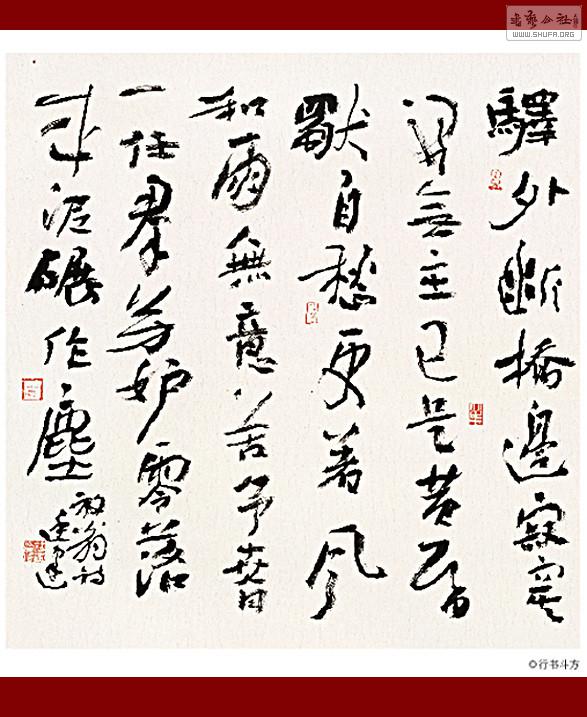 書藝公社
WWW.SHUFA.ORG
驛外斷橋邊寂寞
開無主已是黃昏
獨自愁更著風
和雨無意苦爭春
一任羣芳妒零落
成泥碾作塵
放翁詩
◎行书斗方